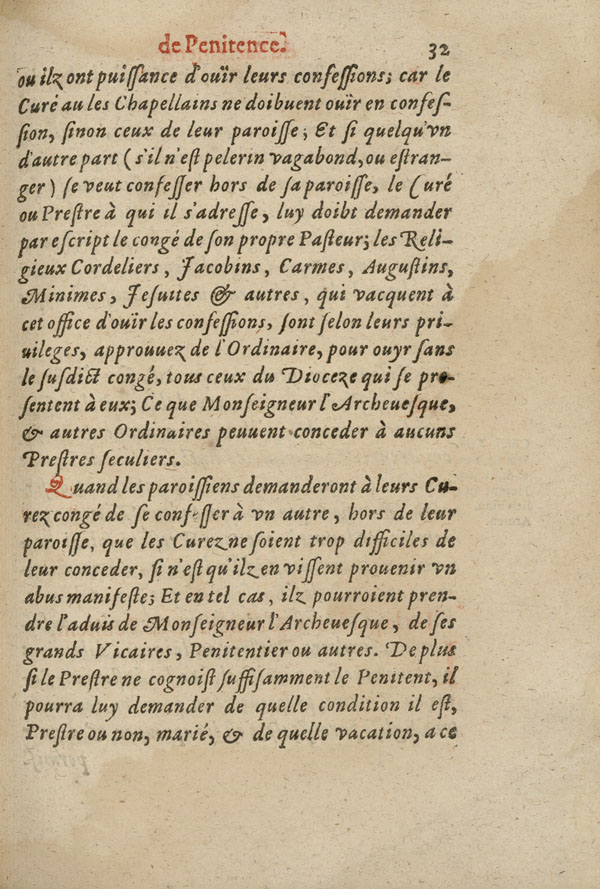 de Penitence.
32
ou ilz ont puiſſance d'ouïr leurs confeſſions; car le
Curé au les Chapellains ne doibuent ouïr en confeſ-
ſion, ſinon ceux de leur paroiſſe; Et ſi quelqu'vn
d'autre part (s'il n'eſt pelerin vagabond, ou eſtran-
ger) ſe veut confeſſer hors de ſa paroiſſe, le Curé
ou Preſtre à qui il s'adreſſe, luy doibt demander
par eſcript le congé de ſon propre Paſteur; les Reli-
gieux Cordeliers, Jacobins, Carmes, Auguſtins,
Minimes, Jeſuites & autres, qui vacquent à
cet office d'ouïr les confeſſions, ſont ſelon leurs pri-
uileges, approuuez de l'Ordinaire, pour ouyr ſans
le ſuſdict congé, tous ceux du Dioceze qui ſe pre-
ſentent à eux; Ce que Monſeigneur l'Archeueſque,
& autres Ordinaires peuuent conceder à aucuns
Preſtres ſeculiers.
Quand les paroiſſiens demanderont à leurs Cu-
rez congé de ſe confeſſer à vn autre, hors de leur
paroiſſe, que les Curez ne ſoient trop difficiles de
leur conceder, ſi n'eſt qu'ilz en viſſent prouenir vn
abus manifeſte; Et en tel cas, ilz pourroient pren-
dre l'aduis de Monſeigneur l'Archeueſque, de ſes
grands Vicaires, Penitentier ou autres. De plus
ſi le Preſtre ne cognoiſt ſuffiſamment le Penitent, il
pourra luy demander de quelle condition il eſt,
Preſtre ou non, marié, & de quelle vacation, a ce